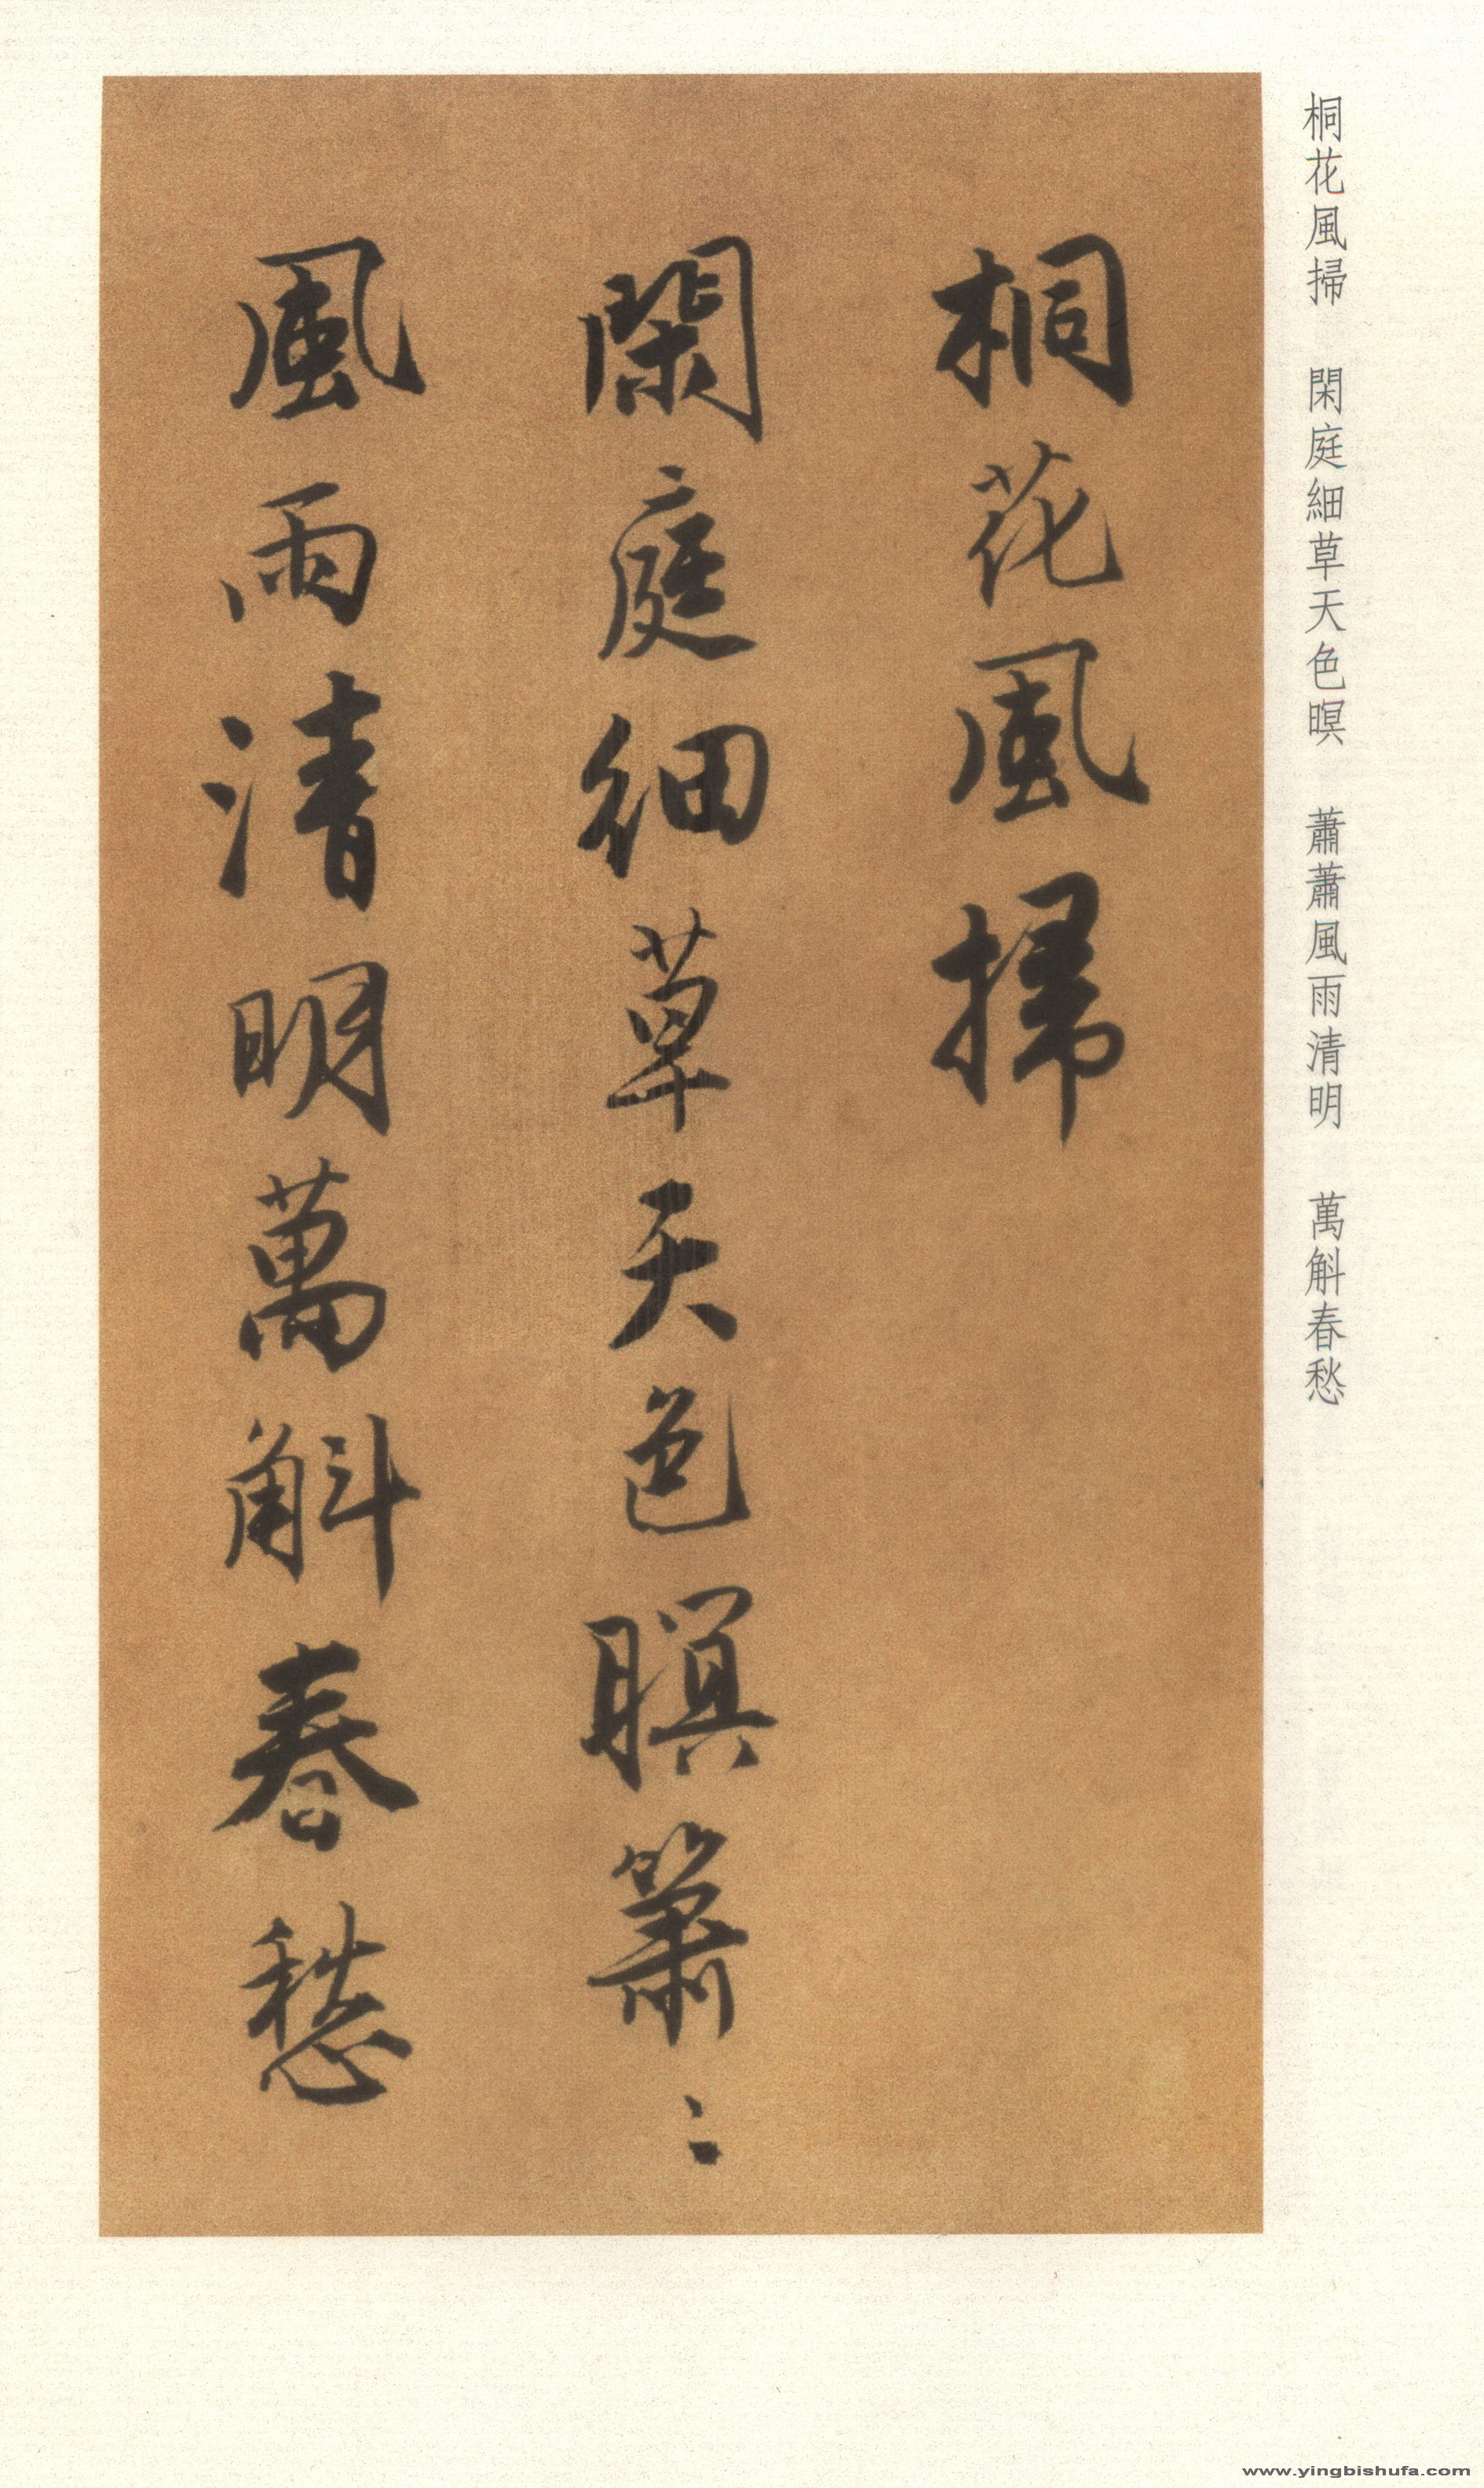 桐花風掃　閑庭細草天色暝　蕭蕭風雨清明　萬斛春愁
桐花風掃
閑庭細草天色暝簫〻
風雨清明萬斛春愁
www.yingbishufa.com